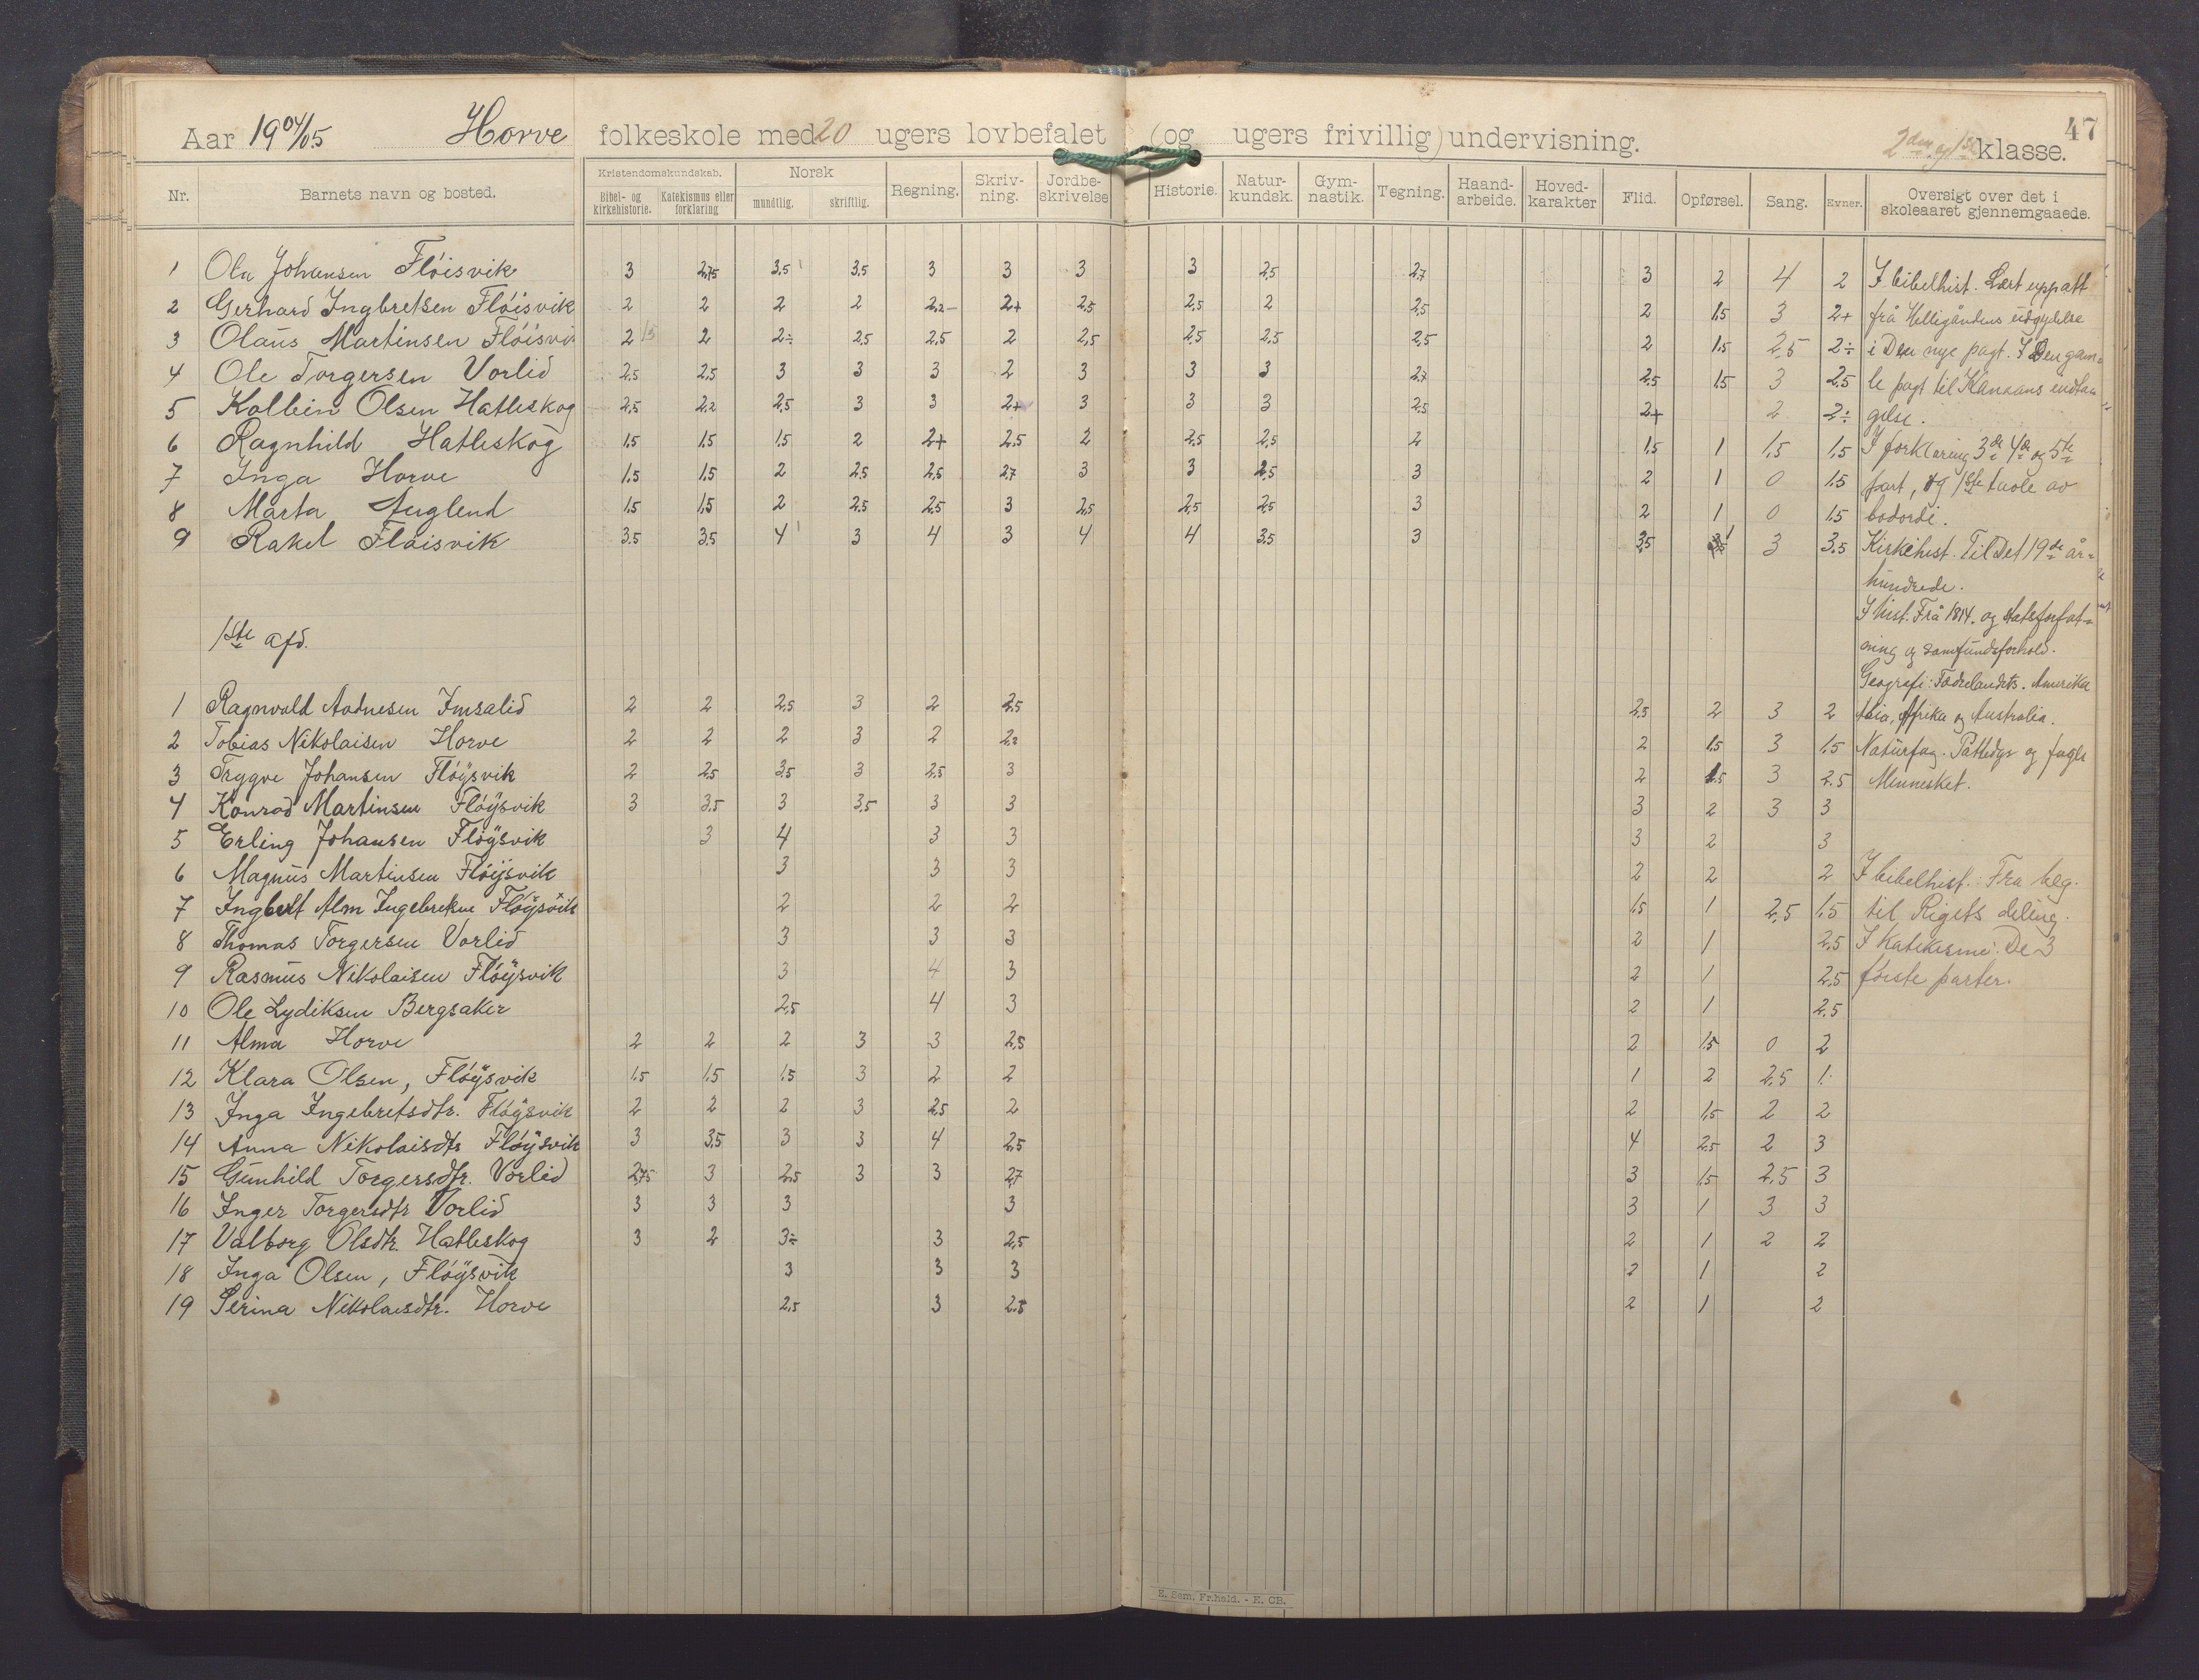 47
Aar 1904/05 Horve folkeskole med 20 ugers lovbefalet (og ugers frivillig) undervisning. 2den og 1ste klasse.
Nr. Barnets navn og bosted. Kristendomskundskab. Bibel- og kirkehistorie. Katekismus eller forklaring Norsk mundtlig. skriftlig. Regning. Skriv-ning. Jordbe-skrivelse Historie. Natur-kundsk. Gym-nastik. Tegning. Haand-arbeide. Hoved-karakter Flid. Opførsel. Sang. Evner. Oversigt over det i skoleaaret gjennemgaaede.
1 Ola Johansen Fløisvik 3 2,75 3,5 3,5 3 3 3 3 2,5 2,7 3 2 4 2 I bibelhist. Lært upp att
2 Gerhard Ingbretsen Fløisvik 2 2 2 2 2,2- 2+ 2,5 2,5 2 2,5 2 1,5 3 2+ frå Helligåndens udgydelse
3 Olaus Martinsen Fløisvik 2 2 2÷ 2,5 2,5 2 2,5 2,5 2,5 2,5 2 1,5 2,5 2÷ i Den nye pagt. I Den gam=
4 Ole Torgersen Vorlid 2,5 2,5 3 3 3 2 3 3 3 2,7 2,5 1,5 3 2,5 le pagt til Kanaans indta
5 Kolbein Olsen Hatleskog 2,5 2,2 2,5 3 3 2+ 3 3 3 2,5 2+ 2 2÷ gelse.
6 Ragnhild Hatleskog 1,5 1,5 1,5 2 2+ 2,5 2 2,5 2,5 2 1,5 1 1,5 1,5 I forklaring 3de 4de og 5te
7 Inga Horve 1,5 1,5 2 2,5 2,5 2,7 3 3 2,5 3 2 1 0 1,5 part, og 1ste tavle av
8 Marta Auglend 1,5 1,5 2 2,5 2,5 3 2,5 2,5 2,5 3 2 1 0 1,5 bodordi.
9 Rakel Fløisvik 3,5 3,5 4 3 4 3 4 4 3,5 3 3,5 3 3,5 Kirkehist. Til Det 19de år=
hundrede.
I hist. Frå 1814. og statsforfat=
1ste afd.
ning og samfundsforhold.
Geografi: Fædrelandets. Amerika
1 Ragnvald Aadnesen Imsalid 2 2 2,5 3 2 2,5 2,5 2 3 2 Asia, Afrika og Australia.
2 Tobias Nikolaisen Horve 2 2 2 3 2 2,2 2 1,5 3 1,5 Naturfag. Pattedyr og fugle
3 Trygve Johansen Fløÿsvik 2 2,5 3,5 3 2,5 3 2 1,5 3 2,5 Mennesket.
4 Konrad Martinsen Fløÿsvik 3 3,5 3 3,5 3 3 3 2 3 3
5 Erling Johansen Fløÿsvik 3 4 3 3 3 2 3
6 Magnus Martinsen Fløÿsvik 3 3 3 2 2 2 I bibelhist.: Fra beg.
7 Alm Fløÿsvik 2 2 2 1,5 1 2,5 1,5 til Rigets deling.
8 Thomas Torgersen Vorlid 3 3 3 2 1 2,5 I Katekisme: De 3
9 Rasmus Nikolaisen Fløÿsvik 3 4 3 2 1 2,5 første parter.
10 Ole Lydiksen Bergsaker 2,5 4 3 2 1 2,5
11 Alma Horve 2 2 2 3 3 2,5 2 1,5 0 2
12 Klara Olsen, Fløÿsvik 1,5 1,5 1,5 3 2 2 1 2 2,5 1
13 Inga Ingebretsdtr. Fløÿsvik 2 2 2 3 2,5 2 2 1,5 2 2
14 Anna Nikolaisdtr Fløÿsvik 3 3,5 3 3 4 2,5 4 2,5 2 3
15 Gunhild Torgersdtr. Vorlid 2,75 3 2,5 3 3 2,7 3 1,5 2,5 3
16 Inger Torgersdtr Vorlid 3 3 3 3 3 1 3 3
17 Valborg Olsdtr. Hatleskog 3 2 3÷ 3 2,5 2 1 2 2
18 Inga Olsen, Fløÿsvik 3 3 3 2 1 2
19 Serina Nikolaisdtr. Horve 2,5 3 2,5 2 1 2
E. Sem. Fr.hald. - E. CB.